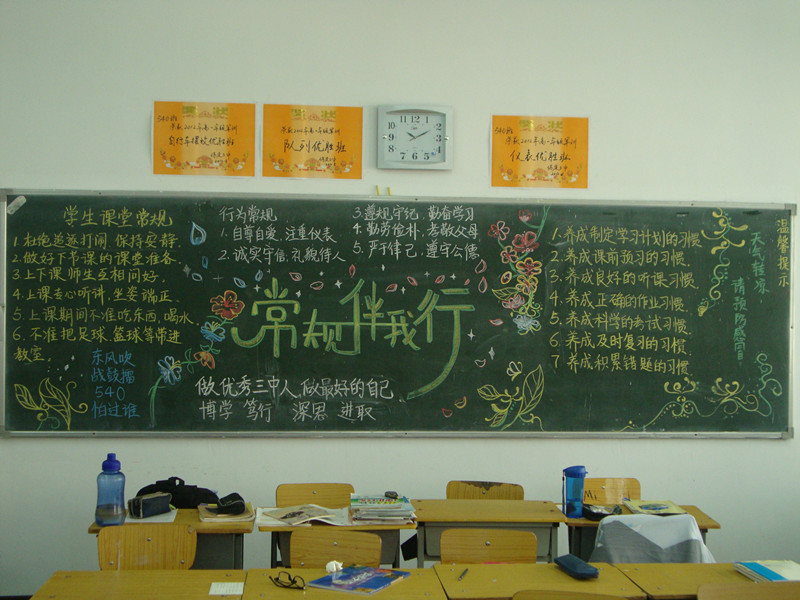 奖状
540班
荣获2012年高一年级军训
自行车摆放优胜班
奖状
荣获2012年高一年级军训
队列优胜班
奖状
540班
荣获2012年高一年级军训
仪表优胜班
学生课堂常规
1.杜绝追逐打闹 保持安静.
2.做好下节课的课堂准备.
3.上下课师生互相问好.
4.上课专心听讲,坐姿端正.
5.上课期间不准吃东西,喝水.
6.不准把足球,篮球等带进
教室.
东风吹
战鼓擂
540
怕过谁
行为常规
1.自尊自爱,注重仪表
2.诚实守信,礼貌待人
3.遵规守纪,勤奋学习
4.勤劳俭朴,孝敬父母
5.严于律己,遵守公德
常规伴我行
做优秀三中人 做最好的自己
博学 笃行 深思 进取
1.养成制定学习计划的习惯
2.养成课前预习的习惯
3.养成良好的听课习惯
4.养成正确的作业习惯
5.养成科学的考试习惯
6.养成及时复习的习惯
7 养成积累错题的习惯
温馨提示
天气转凉
请预防感冒
Mi